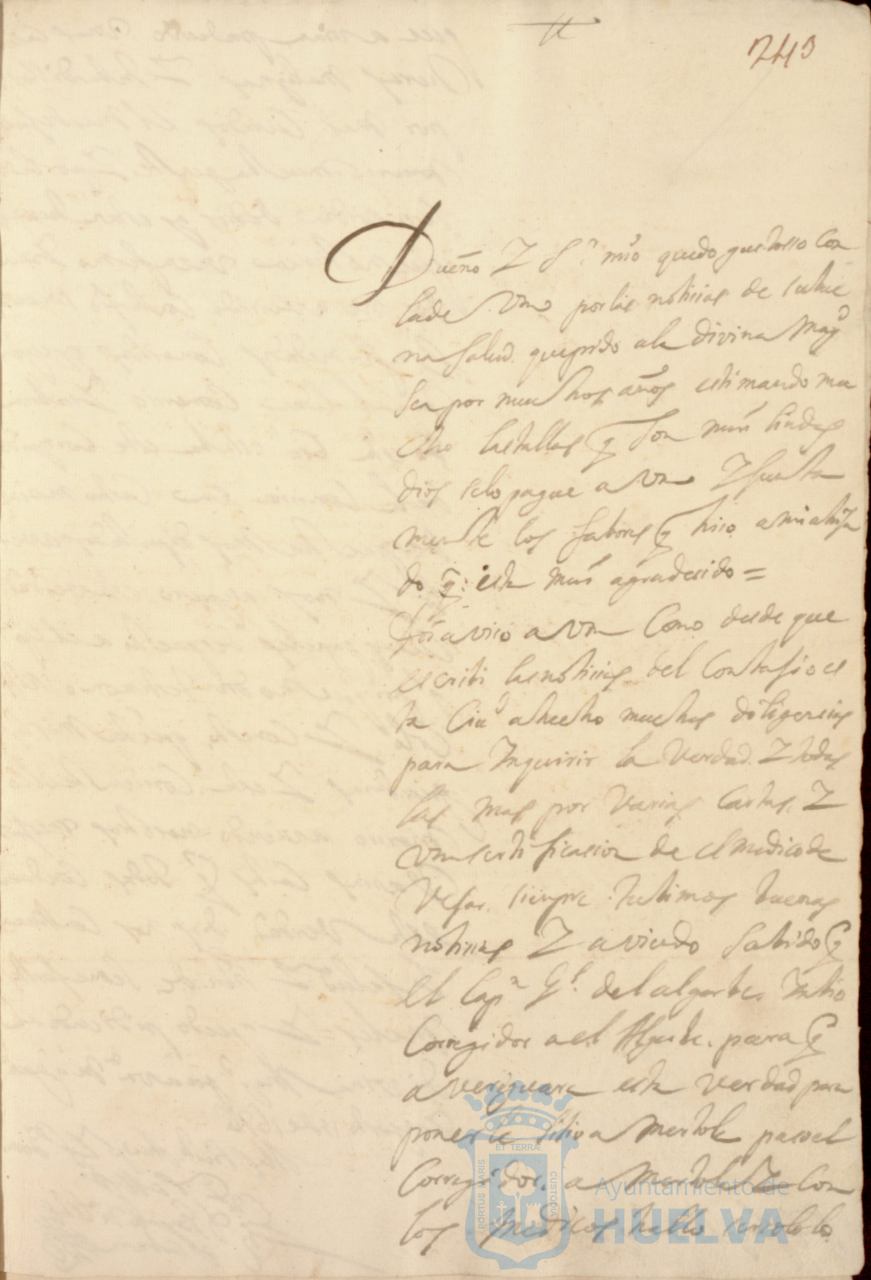 243
Dueño Y Sr mio quedo gustosso con
la de Vm por las notisias de su bue
na salud. quiçido a la divina Magd
sea por muchos años estimando mu
cho las tallas q son mui lindas
dios se lo pague a Vm Y
los fabores q hiso a mi ahija
do q: esta mui agradesido =
aviso a Vm Como desde que
escribi las notisias del Contajio es
ta Ciud a hecho muchas diligensias
para Inquirir la Verdad. Y todas
las mas por varias Cartas. Y
Vna sertificasion de el medico de
siempre tubimos buenas
notisias Y aviendo sabido q
el Capn Gl. del algarbe. Inbio
Corregidor a el Algarbe. para q
averiguara esta verdad para
ponerle sitio a Mertola paso el
Corregidor. a Mertola Y con
los Medicos hallo ser solo
PORTUS MARIS ET TERRAE CUSTODIA
Ayuntamiento de
HUELVA